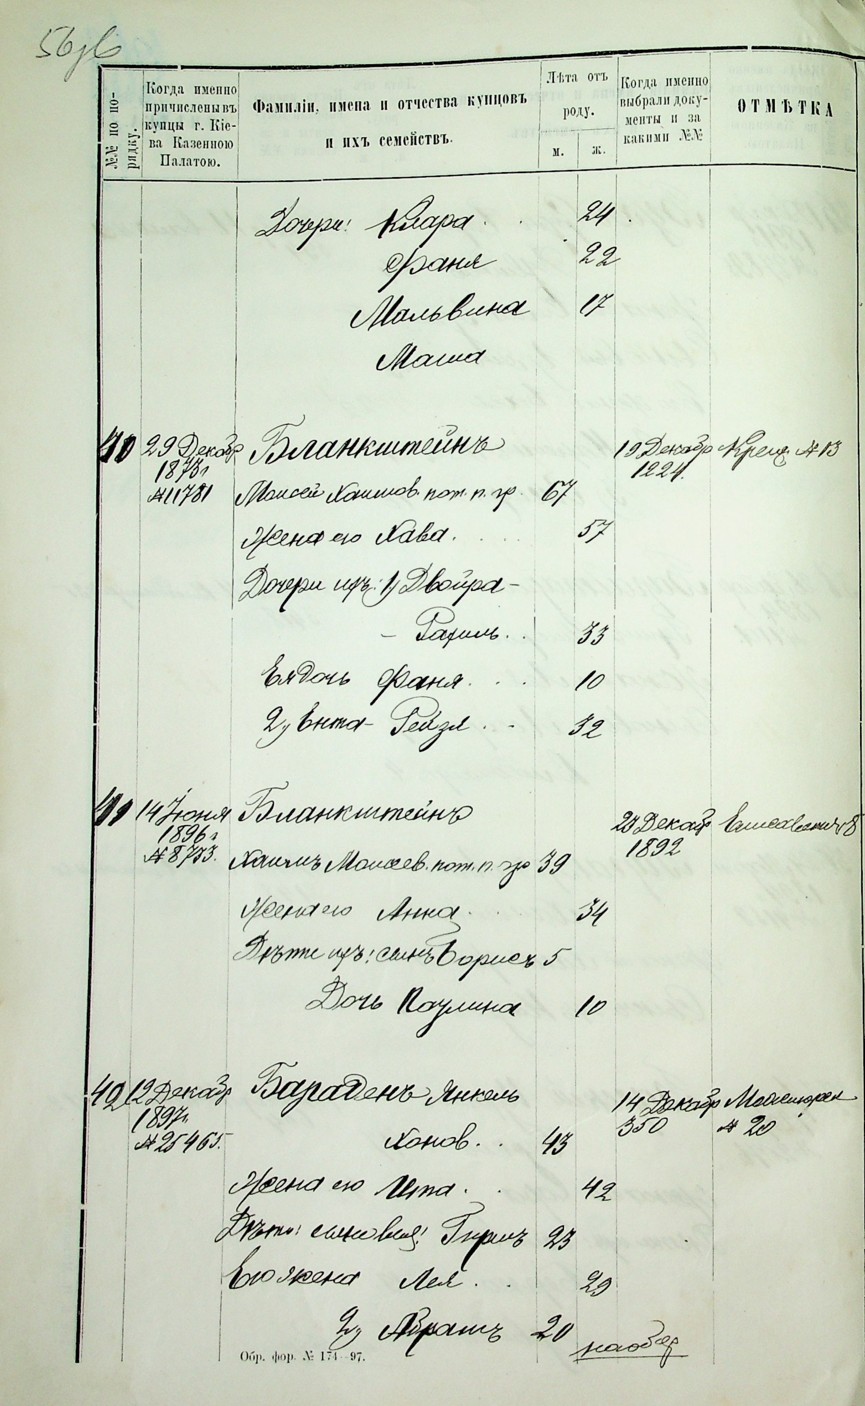 №№ по по-
рядку.
Когда именно
причислены въ
купцы г. Кіе-
ва Казенною
Палатою.
Фамиліи, имена и отчества купцовъ
и ихъ семействъ.
Лѣта отъ
роду.
м. ж.
Когда именно
выбрали доку-
менты и за
какими №№
ОТМѢТКА
Дочери: Клара 24
Фаня 22
Мальвина 17
Маша
40 29 Декабр Бланкштейнъ 19 Декабр Крещ. № 13
1873 г 1224.
№ 11781 Моисей Хаимов. пот. п. гр. 67
Жена его Хава 57
Дочери ихъ: 1) Двойра-
- Рахиль 33
Ея дочь Фаня 10
2) Ента-Рейзя 32
41 14 Іюня Бланкштейнъ 23 Декабр 8
1896 г 1892
№ 8753. Хаимъ Моисеев. пот. п. гр 39
Жена его Анна 34
Дѣти ихъ: сынъ Борисъ 5
Дочь Паулина 10
42 12 Декабр Барабенъ Янкель 14 Декабр
1897 г. 350 № 20
№ 25465. Хонов. 43
Жена его Ита 42
Дѣти: сыновья: Гиршъ 23
Его жена Лея 20
2) Абрамъ 20
Обр. фор. № 174—97.